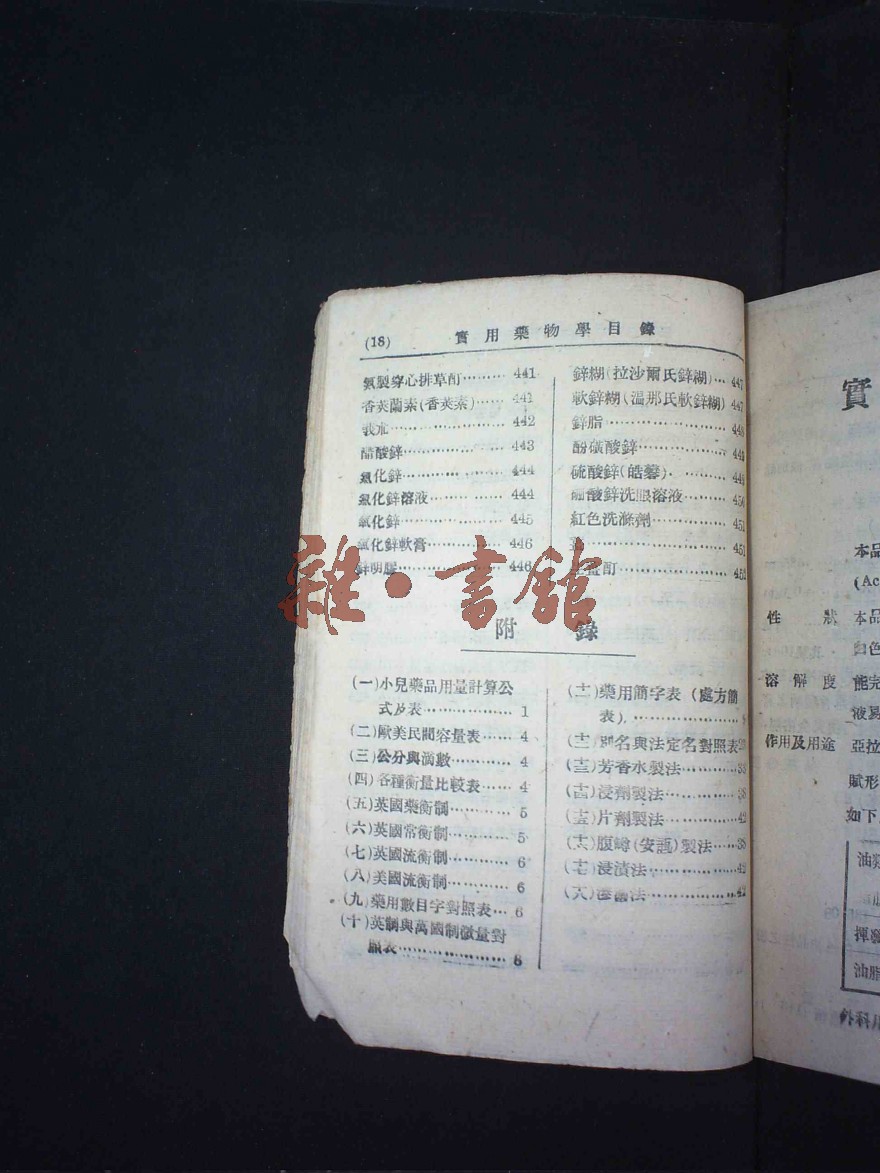 (18) 實用藥物學目錄
氨製穿心排草酊……… 441
香莢蘭素(香莢素)……… 441
442
醋酸鋅……………… 443
氯化鋅……………… 444
氯化鋅溶液…………… 444
氧化鋅……………… 445
氧化鋅軟膏………… 446
鋅明膠……………… 446
鋅糊(拉沙爾氏鋅糊)… 447
軟鋅糊(溫那氏軟鋅糊) 447
鋅脂……………… 448
酚磺酸鋅…………… 449
硫酸鋅(皓礬)………… 449
硼酸鋅洗眼溶液……… 450
紅色洗滌劑………… 451
451
酊……………… 452
雜·書舘
附錄
(一)小兒藥品用量計算公
式及表……………… 1
(二)歐美民間容量表…… 4
(三)公分與滴數………… 4
(四)各種衡量比較表…… 4
(五)英國藥衡制………… 5
(六)英國常衡制………… 5
(七)英國流衡制………… 6
(八)美國流衡制………… 6
(九)藥用數目字對照表… 6
(十)英制與萬國制微量對
照表……………… 8
(十一)藥用簡字表(處方簡
表)………………
(十二)別名與法定名對照表
(十三)芳香水製法………… 38
(十四)浸劑製法………… 38
(十五)片劑製法………… 42
(十六)腹罇(安瓿)製法…… 38
(十七)浸漬法…………… 42
(十八)滲濾法…………… 42
實
本品
(Ac
性狀 本品
白色
溶解度 能完
液易
作用及用途 亞拉
賦形
如下
油類
揮發
油脂
外科用